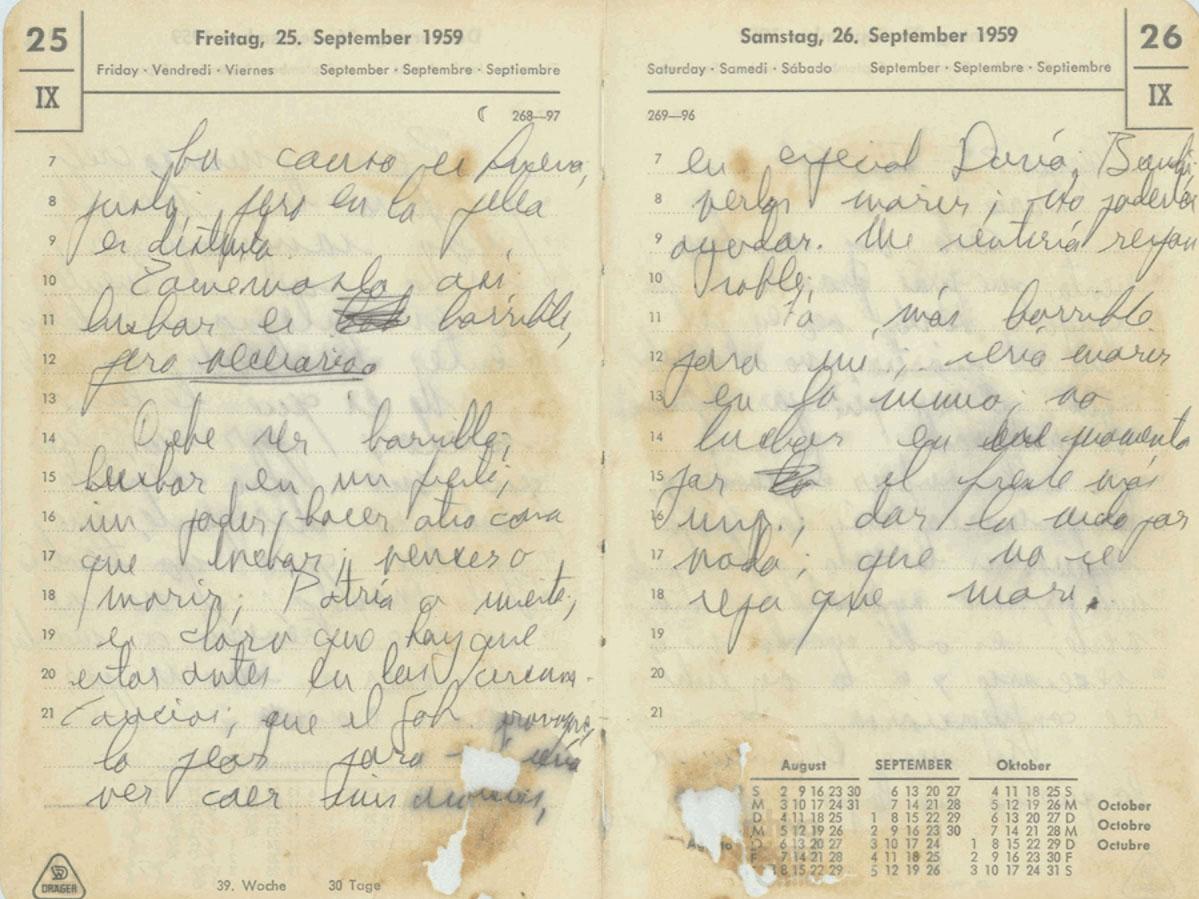 25
IX
Freitag, 25. September 1959
Friday · Vendredi · Viernes September · Septembre · Septiembre
268—97
7 La causa es buena,
8 justa, pero en la pelea
9 es distinto.
10 así
11 luchar es horrible,
12 pero necesario
13
14 Debe ser horrible;
15 luchar en un
16 sin poder hacer otra cosa
17 que luchar; vencer o
18 morir; Patria o muerte,
19 es claro que hay que
20 estar antes en las circuns-
21 tancias; que el
lo peor para sería
ver caer mis
39. Woche 30 Tage
DRÄGER
26
IX
Samstag, 26. September 1959
Saturday · Samedi · Sábado September · Septembre · Septiembre
269—96
7 en especial
8 verlos morir; sin poderlos
9 ayudar. Me sentiría respon
10
11 más horrible
12 para mí, sería morir
13 en la mina, no
14 luchar en ese momento
15 por el frente más
16 imp.; dar la vida por
17 nada; que no se
18 sepa que morí.
19
20
21
August SEPTEMBER Oktober
S 2 9 16 23 30 6 13 20 27 4 11 18 25 S
M 3 10 17 24 31 7 14 21 28 5 12 19 26 M October
D 4 11 18 25 1 8 15 22 29 6 13 20 27 D Octobre
M 5 12 19 26 2 9 16 23 30 7 14 21 28 M
6 13 20 27 3 10 17 24 1 8 15 22 29 D Octubre
F 7 14 21 28 4 11 18 25 2 9 16 23 30 F
1 8 15 22 29 5 12 19 26 3 10 17 24 31 S